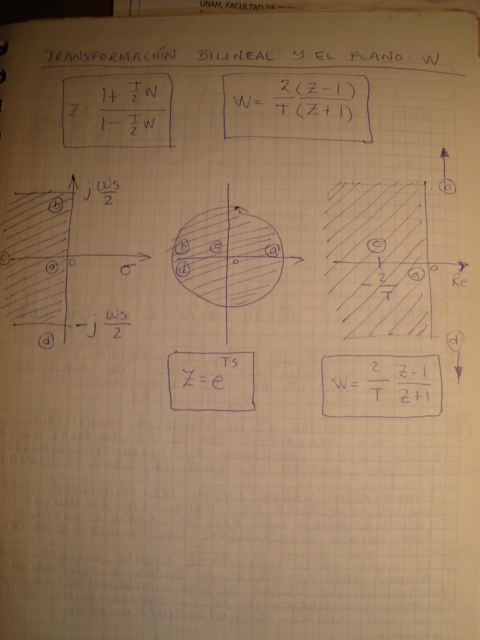 UNAM, FACULTAD DE
TRANSFORMACIÓN BILINEAL Y EL PLANO W
Z = (1 + T/2 W) / (1 - T/2 W)
W = 2(Z-1) / T(Z+1)
j Ws/2
b
c
a
0
σ
-j Ws/2
d
b
c
a
d
0
b
c
-2/T
a
0
Re
d
Z = e^Ts
W = 2/T Z-1/Z+1